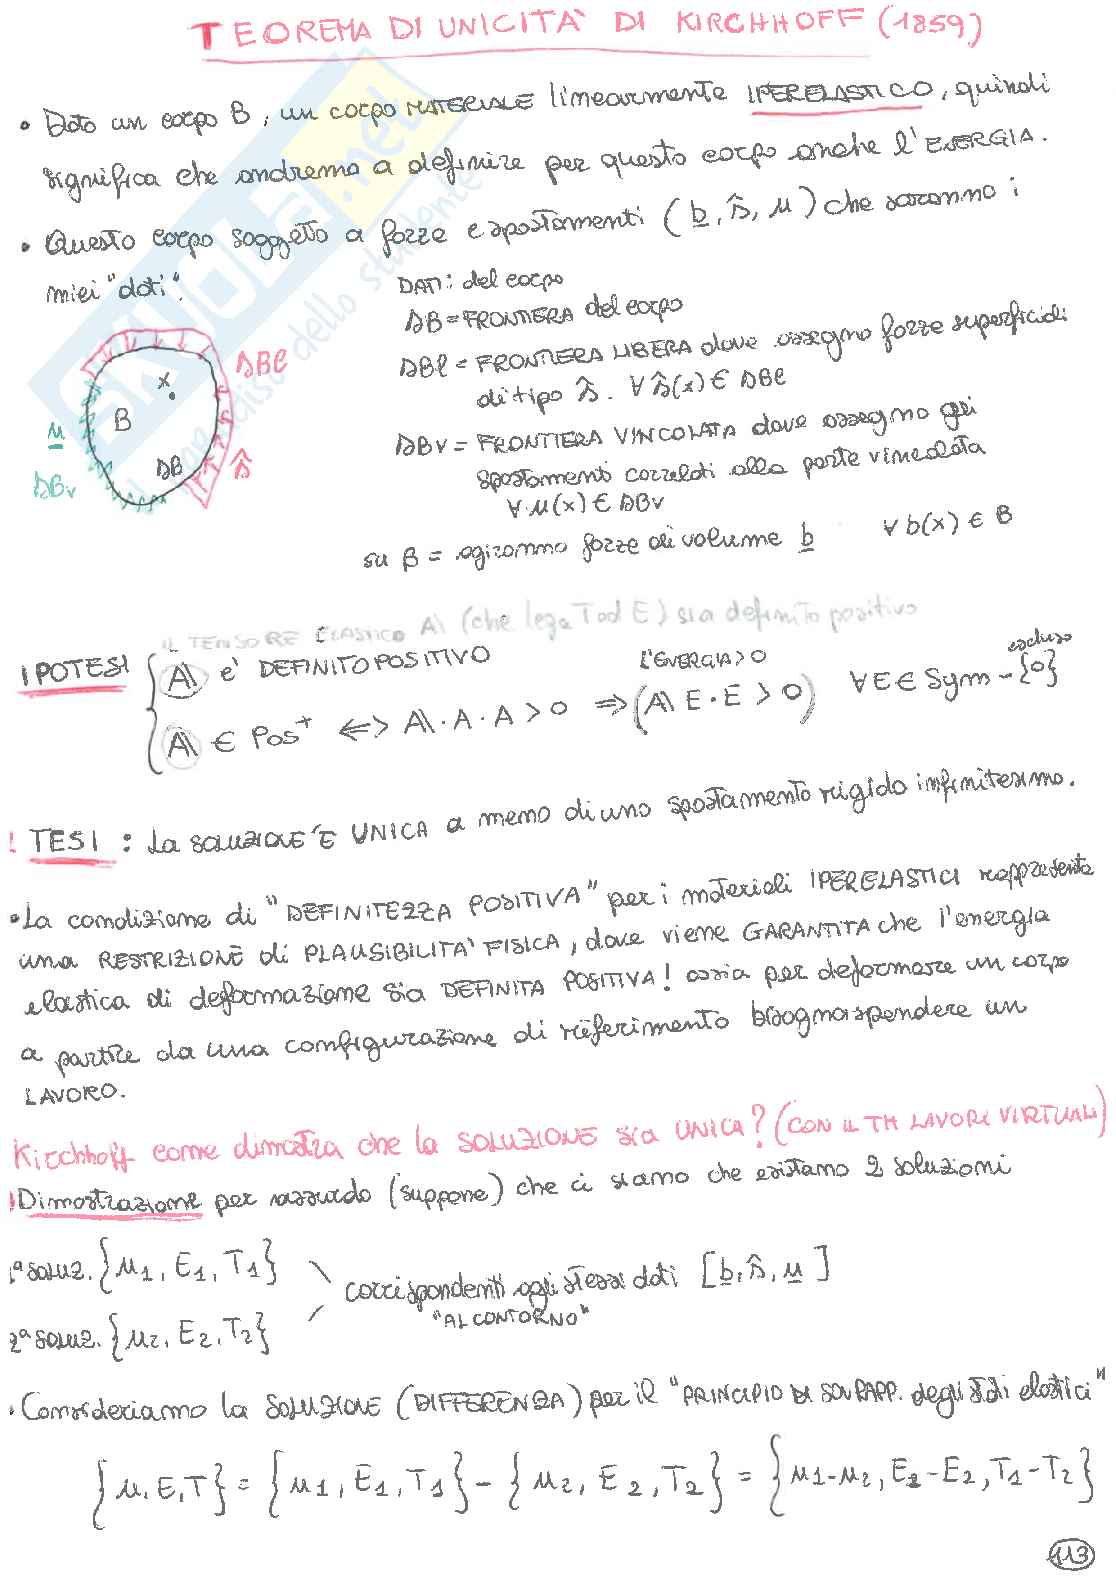 TEOREMA DI UNICITÀ DI KIRCHHOFF (1859)
• Dato un corpo B, un corpo MATERIALE linearmente IPERELASTICO, quindi
significa che andremo a definire per questo corpo anche l'ENERGIA.
• Questo corpo soggetto a forze e spostamenti (b, ŝ, u) che saranno i
miei "dati".
DATI: del corpo
∂B = FRONTIERA del corpo
∂Bℓ = FRONTIERA LIBERA dove assegno forze superficiali
di tipo ŝ. ∀ ŝ(x) ∈ ∂Bℓ
∂Bv = FRONTIERA VINCOLATA dove assegno gli
spostamenti correlati alla parte vincolata
∀ u(x) ∈ ∂Bv
su B = agiranno forze di volume b ∀ b(x) ∈ B
∂Bℓ
x
B
u
∂B
ŝ
∂Bv
IL TENSORE ELASTICO A (che lega T ad E) sia definito positivo
IPOTESI { A è DEFINITO POSITIVO
L'ENERGIA > 0
escluso
A ∈ Pos⁺ ⟷ A · A · A > 0 ⇒ (A E · E > 0) ∀ E ∈ Sym - {0}
! TESI : La SOLUZIONE È UNICA a meno di uno spostamento rigido infinitesimo.
• La condizione di "DEFINITEZZA POSITIVA" per i materiali IPERELASTICI rappresenta
una RESTRIZIONE di PLAUSIBILITÀ FISICA, dove viene GARANTITA che l'energia
elastica di deformazione sia DEFINITA POSITIVA! ossia per deformare un corpo
a partire da una configurazione di riferimento bisogna spendere un
LAVORO.
Kirchhoff come dimostra che la SOLUZIONE sia UNICA? (CON IL TH LAVORI VIRTUALI)
! Dimostrazione per assurdo (suppone) che ci siano che esistano 2 soluzioni
1ª SOLUZ. {u1, E1, T1}
corrispondenti agli stessi dati [b, ŝ, u]
"AL CONTORNO"
2ª SOLUZ. {u2, E2, T2}
• Consideriamo la SOLUZIONE (DIFFERENZA) per il "PRINCIPIO DI SOVRAPP. degli stati elastici"
{u, E, T} = {u1, E1, T1} - {u2, E2, T2} = {u1-u2, E1-E2, T1-T2}
113